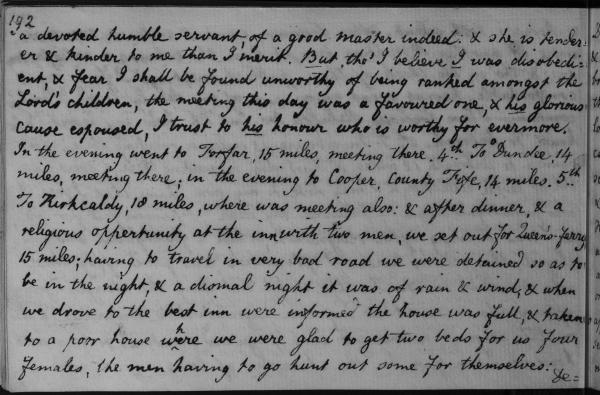 192
a devoted humble servant, of a good master indeed: & she is tender-
er & kinder to me than I merit. But tho' I believe I was disobedi-
ent, & fear I shall be found unworthy of being ranked amongst the
Lord's children, the meeting this day was a favoured one, & his glorious
cause espoused, I trust to his honour who is worthy for evermore.
In the evening went to Forfar, 15 miles, meeting there. 4th To Dundee, 14
miles, meeting there; in the evening to Cooper, County Fife, 14 miles. 5th
To Kirkcaldy, 18 miles, where was meeting also: & after dinner, & a
religious oppertunity at the inn with two men, we set out for Queen's-ferry
15 miles; having to travel in very bad road we were detained so as to
be in the night, & a dismal night it was of rain & wind, & when
we drove to the best inn were informed the house was full, & taken
to a poor house where we were glad to get two beds for us four
females, the men having to go hunt out some for themselves: